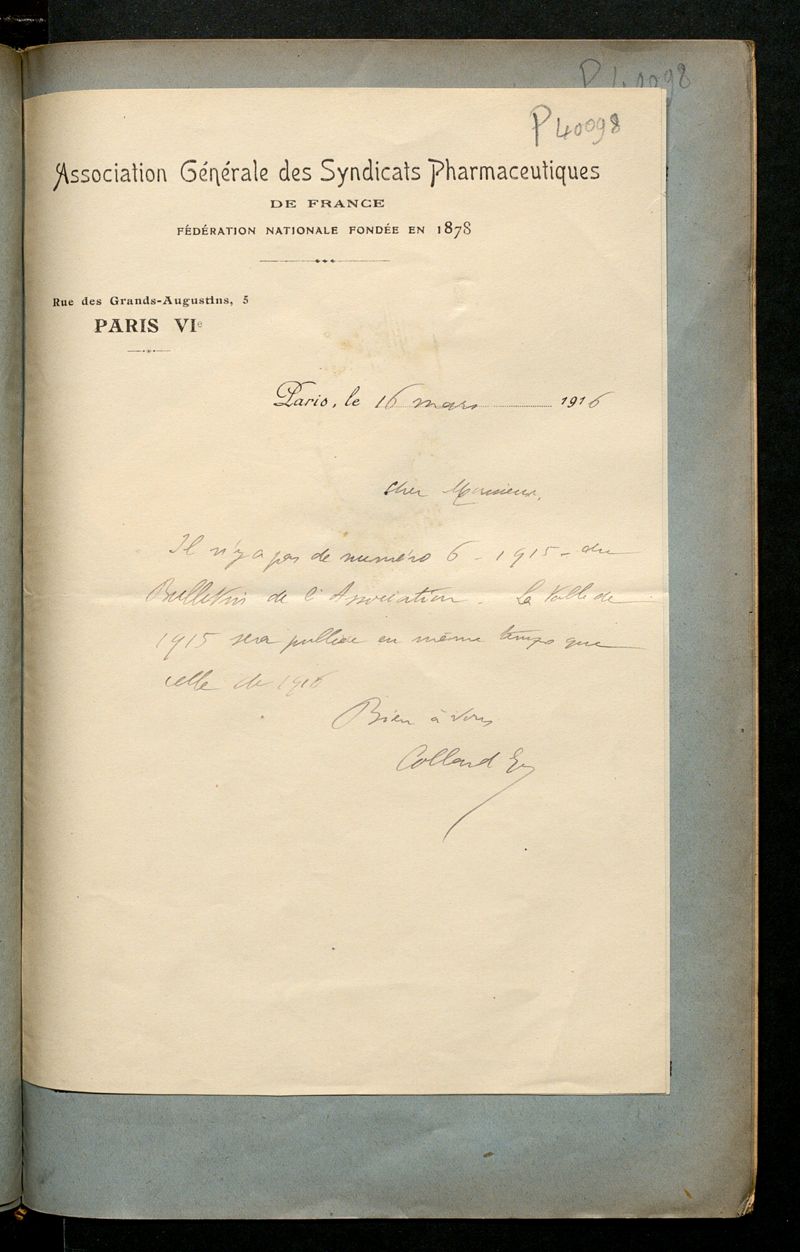 P 40098
P 40098
Association Générale des Syndicats Pharmaceutiques
DE FRANCE
FÉDÉRATION NATIONALE FONDÉE EN 1878
Rue des Grands-Augustins, 5
PARIS VIe
Paris, le 16 mars 1916
Cher Monsieur,
Il n'y a pas de numéro 6 - 1915 - du
Bulletin de l'Association. La Table de
1915 sera publiée en même temps que
celle de 1916
Bien à vous
Collard